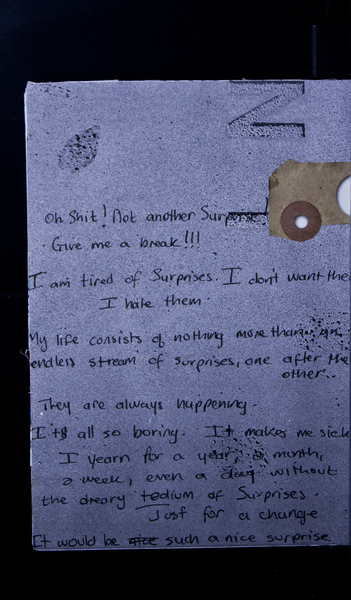 N
Oh Shit! Not another Surprise
Give me a break!!!
I am tired of Surprises. I don't want the
I hate them.
My life consists of nothing more than an
endless stream of surprises, one after the
other..
They are always happening.
It's all so boring. It makes me sick
I yearn for a year, a month,
a week, even a day without
the dreary tedium of Surprises.
Just for a change
It would be nice such a nice surprise